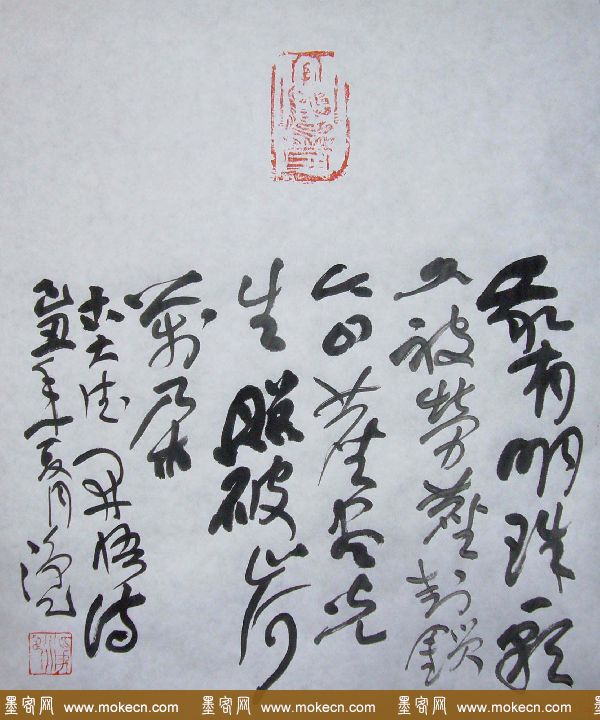 我有明珠一顆
久被勞塵封鎖
今日塵盡光
生照破山河
萬朵
大德開悟詩
己丑年夏月
墨客网 www.mokecn.com 墨客网 www.mokecn.com 墨客网 www.mokecn.com